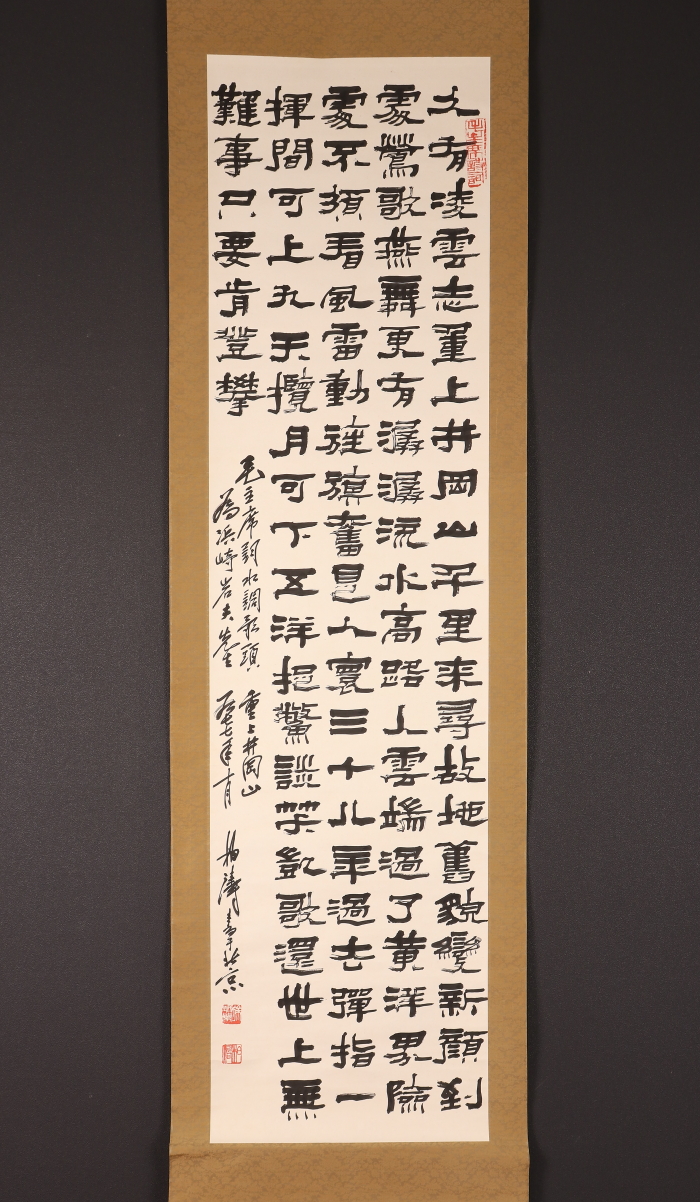 久有凌雲志重上井岡山千里来尋故地舊貌變新顏到
處鶯歌燕舞更有潺潺流水高路入雲端過了黄洋界險
處不須看風雷動旌旗奮是人寰三十八年過去彈指一
揮間可上九天攬月可下五洋捉鱉談笑凱歌還世上無
難事只要肯登攀
毛主席詞水調歌頭 重上井岡山
為浜崎岩夫先生 一九七七年十月 濤書于北京